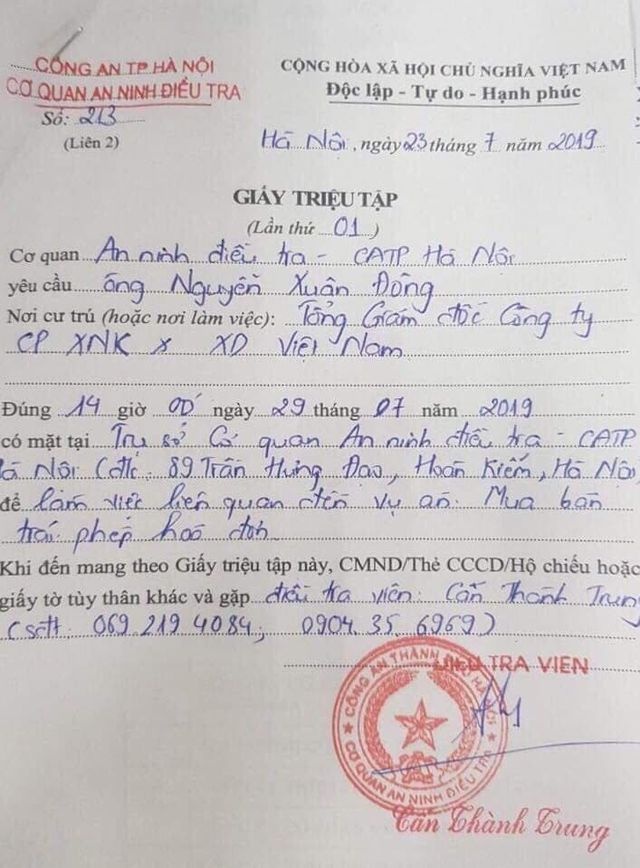 CÔNG AN TP HÀ NỘI
CƠ QUAN AN NINH ĐIỀU TRA
Số: 213
(Liên 2)
CỘNG HÒA XÃ HỘI CHỦ NGHĨA VIỆT NAM
Độc lập - Tự do - Hạnh phúc
Hà Nội, ngày 23 tháng 7 năm 2019
GIẤY TRIỆU TẬP
(Lần thứ 01)
Cơ quan An ninh điều tra - CATP Hà Nội
yêu cầu ông Nguyễn Xuân Đông
Nơi cư trú (hoặc nơi làm việc): Tổng Giám đốc Công ty
CP XNK x XD Việt Nam
Đúng 14 giờ 00 ngày 29 tháng 07 năm 2019
có mặt tại Trụ sở Cơ quan An ninh điều tra - CATP
Hà Nội (đ/c: 89 Trần Hưng Đạo, Hoàn Kiếm, Hà Nội
để làm việc liên quan đến vụ án: Mua bán
trái phép hoá đơn
Khi đến mang theo Giấy triệu tập này, CMND/Thẻ CCCD/Hộ chiếu hoặc
giấy tờ tùy thân khác và gặp điều tra viên: Cấn Thành Trung
(sđt: 069 219 4084; 0904.35 6969)
ĐIỀU TRA VIÊN
CÔNG AN THÀNH PHỐ HÀ NỘI
CƠ QUAN AN NINH ĐIỀU TRA
Cấn Thành Trung